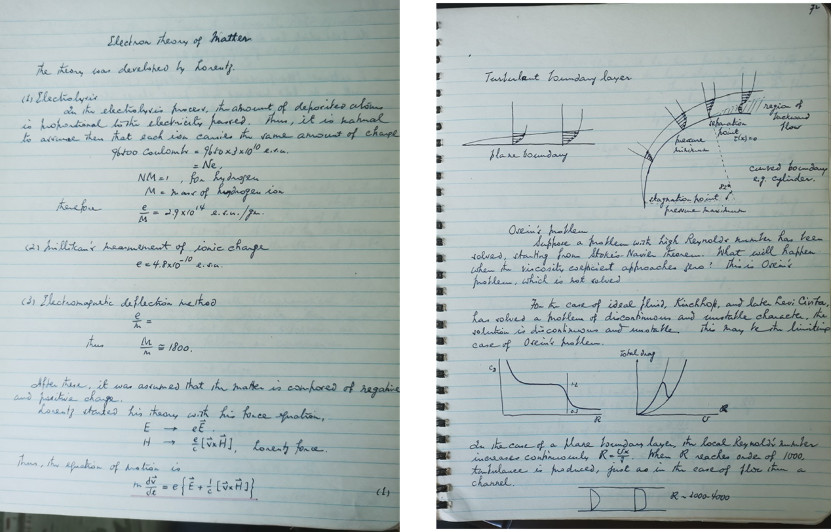 Electron theory of Matter
The theory was developed by Lorentz.
(1) Electrolysis
In the electrolysis process, the amount of deposited atoms
is proportional to the electricity passed. Thus, it is natural
to assume then that each ion carries the same amount of charge
96500 Coulombs = 9650 x 3 x 10^10 e.s.u.
= Ne,
NM = 1, for hydrogen
M = mass of hydrogen ion
therefore e/M = 2.9 x 10^14 e.s.u./gr.
(2) Millikan's measurement of ionic charge
e = 4.8 x 10^-10 e.s.u.
(3) Electromagnetic deflection method
e/m =
thus M/m ≅ 1800.
After these, it was assumed that the matter is composed of negative
and positive charge.
Lorentz started his theory with his force equation,
E → eE⃗.
H → e/c [v⃗ x H⃗], Lorentz force.
Thus, the equation of motion is
m dv⃗/dt = e { E⃗ + 1/c [v⃗ x H⃗] }
(1)
Turbulent boundary layer
plane boundary
region of
backward
flow
separation
point
pressure
minimum
curved boundary
e.g. cylinder.
stagnation point
pressure maximum
Osein's problem
Suppose a problem with high Reynold's number has been
solved, starting from Stokes Navier theorem. What will happen
when the viscosity coefficient approaches zero? This is Osein's
problem, which is not solved
For the case of ideal fluid, Kirchhop, and late Levi Civita,
has solved a problem of discontinuous and unstable character, the
solution is discontinuous and unstable. This may be the limiting
case of Osein's problem.
Total drag
R
U
In the case of a plane boundary layer, the local Reynold's number
increases continuously R = Ux/ν. When R reaches order of 1000,
turbulence is produced, just as in the case of flow thru a
channel.
R ~ 1000-4000